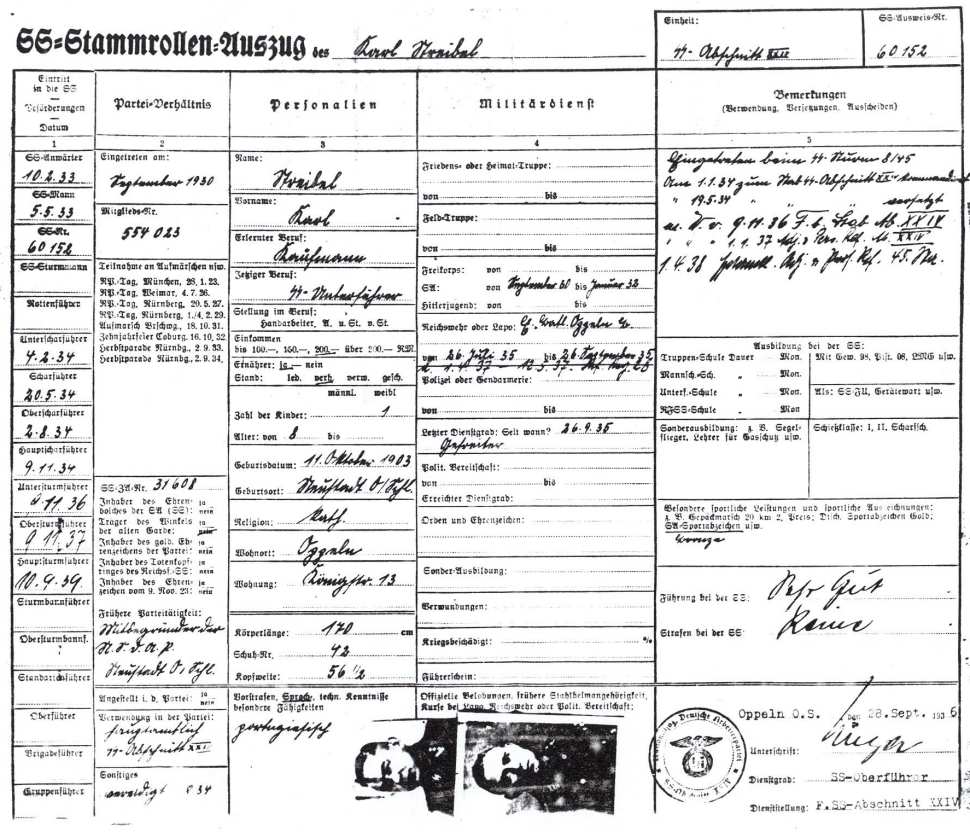 SS-Stammrollen-Auszug des Karl Streibel
Einheit:
SS-Abschnitt XXIV
SS-Ausweis-Nr.
60152
Eintritt
in die SS
Beförderungen
Datum
Partei-Verhältnis
Personalien
Militärdienst
Bemerkungen
(Verwendung, Versetzungen, Ausscheiden)
1
2
3
4
5
SS-Anwärter
10.2.33
SS-Mann
5.5.33
SS-Nr.
60152
SS-Sturmmann
Rottenführer
Unterscharführer
4.2.34
Scharführer
20.5.34
Oberscharführer
2.8.34
Hauptscharführer
9.11.34
Untersturmführer
9.11.36
Obersturmführer
9.11.37
Hauptsturmführer
10.9.39
Sturmbannführer
Obersturmbannf.
Standartenführer
Oberführer
Brigadeführer
Gruppenführer
Eingetreten am:
September 1930
Mitglieds-Nr.
554023
Teilnahme an Aufmärschen usw.
RP.-Tag, München, 28.1.23.
RP.-Tag, Weimar, 4.7.26.
RP.-Tag, Nürnberg, 20.5.27.
RP.-Tag, Nürnberg, 1./4.2.29.
Aufmarsch Brschwg., 18.10.31.
Zehnjahrfeier Coburg, 16.10.32
Herbstparade Nürnbg., 2.9.33.
Herbstparade Nürnbg., 2.9.34.
SS-ZA-Nr. 31608
Inhaber des Ehren- ja
dolches der SA (SS): nein
Träger des Winkels ja
der alten Garde: nein
Inhaber des gold. Eh- ja
renzeichens der Partei: nein
Inhaber des Totenkopf- ja
ringes des Reichsf.-SS: nein
Inhaber des Ehren- ja
zeichen vom 9. Nov. 23: nein
Frühere Parteitätigkeit:
Mitbegründer der
N.S.D.A.P.
Neustadt O/Schl.
Angestellt i. d. Partei: ja
nein
Verwendung in der Partei:
hauptamtlich
SS-Abschnitt XXIV
Sonstiges
vereidigt 34
Name:
Streibel
Vorname:
Karl
Erlernter Beruf:
Kaufmann
Jetziger Beruf:
SS-Unterführer
Stellung im Beruf:
Handarbeiter, A. u. St. v. St.
Einkommen
bis 100.—, 150.—, 200.— über 200.— RM.
Ernährer: ja — nein
Stand: led. verh. verw. gesch.
männl. weibl
Zahl der Kinder: 1
Alter: von 8 bis
Geburtsdatum: 11. Oktober 1903
Geburtsort: Neustadt O/Schl.
Religion: kath.
Wohnort: Oppeln
Wohnung: Königstr. 13
Körperlänge: 170 cm
Schuh-Nr. 42
Kopfweite: 56 1/2
Vorstrafen, Sprach-, techn. Kenntnisse
besondere Fähigkeiten
portugiesisch
Friedens- oder Heimat-Truppe:
von bis
Feld-Truppe:
von bis
Freikorps: von bis
SA: von September 30 bis Januar 32
Hitlerjugend: von bis
Reichswehr oder Lapo: Oppeln
von 26. Juli 35 bis 26. September 35
Polizei oder Gendarmerie:
von bis
Letzter Dienstgrad: Seit wann? 26.9.35
Gefreiter
Polit. Bereitschaft:
von bis
Erreichter Dienstgrad:
Orden und Ehrenzeichen:
Sonder-Ausbildung:
Verwundungen:
Kriegsbeschädigt: %
Führerschein:
Offizielle Belobungen, frühere Stahlhelmangehörigkeit,
Kurse bei Lapo, Reichswehr oder Polit. Bereitschaft:
Eingetreten beim SS-Sturm 8/45
Am 1.1.34 zum Stab SS-Abschnitt XXIV kommandiert
" 19.5.34 " " versetzt
m. W. v. 9.11.36 F. b. Stab Ab. XXIV
" " " 1.1.37 Adj. Ab. XXIV
1.4.38 Adj. 45. Sta.
Ausbildung bei der SS:
Truppen-Schule Dauer Mon.
Mit Gew. 98, Pist. 08, LMG usw.
Mannsch.-Sch. " Mon.
Unterf.-Schule " Mon.
Als: SS-FU, Gerätewart usw.
RFSS-Schule " Mon
Sonderausbildung: z. B. Segel-
flieger, Lehrer für Gasschutz usw.
Schießklasse: I, II, Scharfsch.
Besondere sportliche Leistungen und sportliche Auszeichnungen:
z. B. Gepäckmarsch 20 km 2. Preis; Dtsch. Sportabzeichen Gold;
SA-Sportabzeichen usw.
bronze
Führung bei der SS: Sehr Gut
Strafen bei der SS: Keine
Oppeln O.S., den 28. Sept. 1936
Unterschrift:
Dienstgrad: SS-Oberführer
Dienststellung: F.SS-Abschnitt XXIV